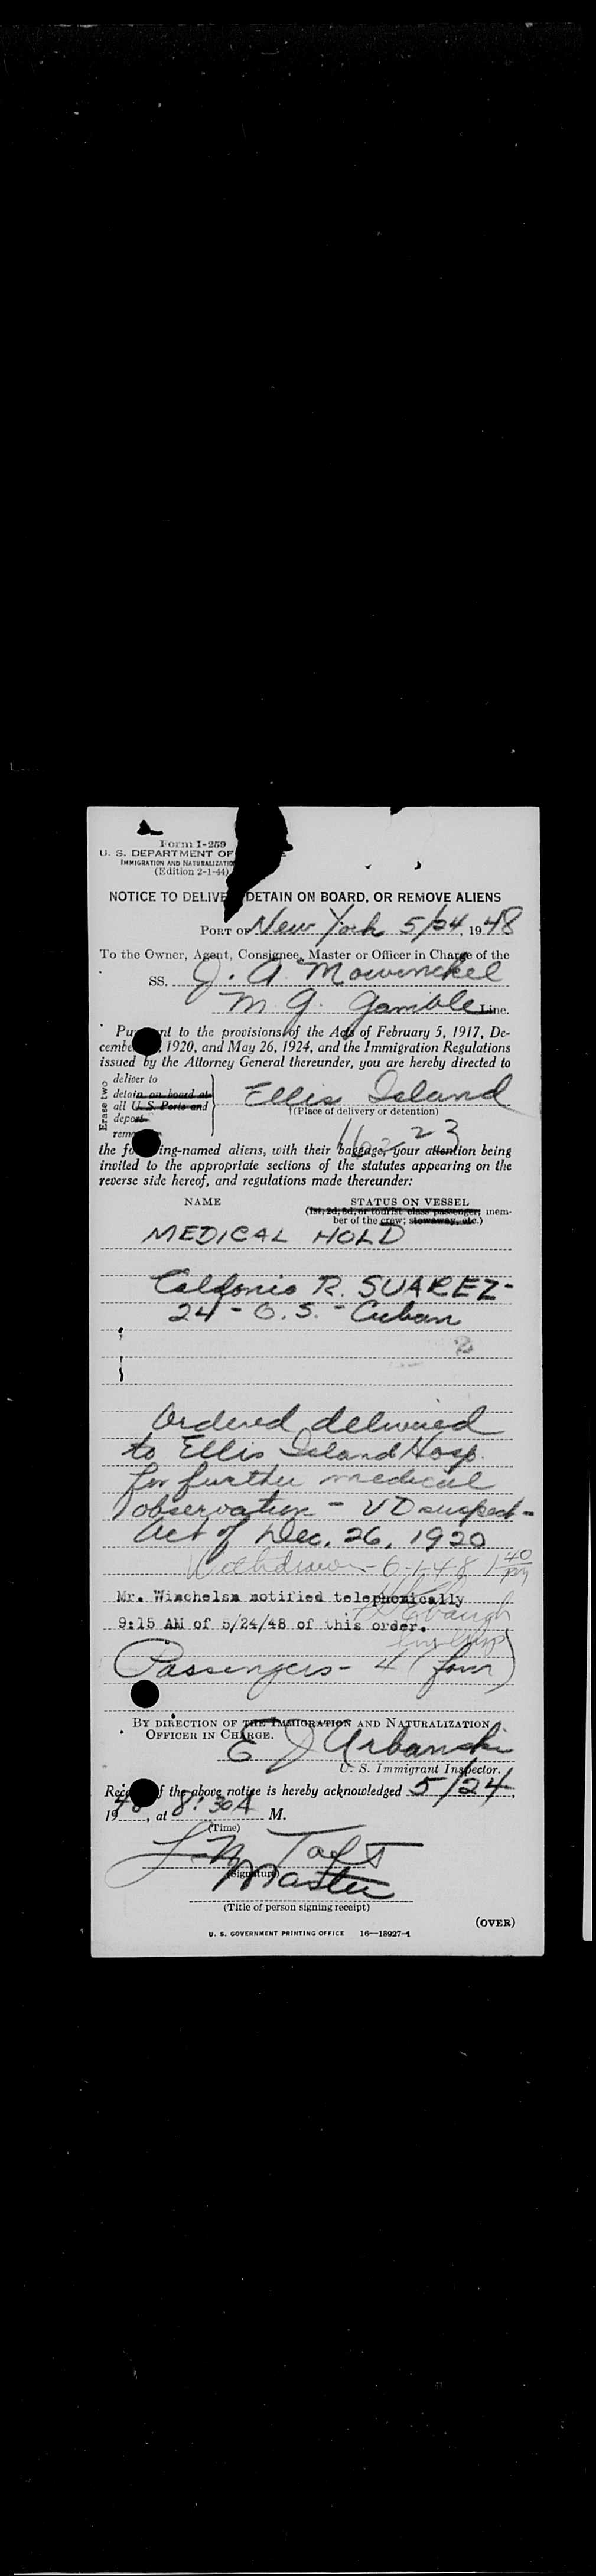 Form I-259
U. S. DEPARTMENT OF
IMMIGRATION AND NATURALIZATIO
(Edition 2-1-44)
NOTICE TO DELIVE DETAIN ON BOARD, OR REMOVE ALIENS
PORT OF New York 5/24, 1948
To the Owner, Agent, Consignee, Master or Officer in Charge of the
SS. J. A. Mowinckel
M G. Gamble Line.
Pu nt to the provisions of the Acts of February 5, 1917, De-
cembe , 1920, and May 26, 1924, and the Immigration Regulations
issued by the Attorney General thereunder, you are hereby directed to
Erase two
deliver to
detain on board at
all U. S. Ports and
deport
remo
Ellis Island
(Place of delivery or detention)
the fo ing-named aliens, with their baggage, your attention being
invited to the appropriate sections of the statutes appearing on the
reverse side hereof, and regulations made thereunder:
NAME STATUS ON VESSEL
(1st, 2d, 3d, or tourist class passenger; mem-
ber of the crew; stowaway, etc.)
MEDICAL HOLD
R. SUAREZ-
24 - O.S. - Cuban
Ordered delivered
to Ellis Island Hosp.
for further medical
observation - VD suspect -
Act of Dec. 26, 1920
Withdrawn - 6-1-48 1 40 pm
Mr. notified telephonically
9:15 AM of 5/24/48 of this order.
Passengers - 4 (four)
BY DIRECTION OF THE IMMIGRATION AND NATURALIZATION
OFFICER IN CHARGE.
E J Urbanski
U. S. Immigrant Inspector.
Rece f the above notice is hereby acknowledged 5/24,
1948, at 8:30 A M.
(Time)
Taft
(Signature)
Master
(Title of person signing receipt)
(OVER)
U. S. GOVERNMENT PRINTING OFFICE 16—18927-1